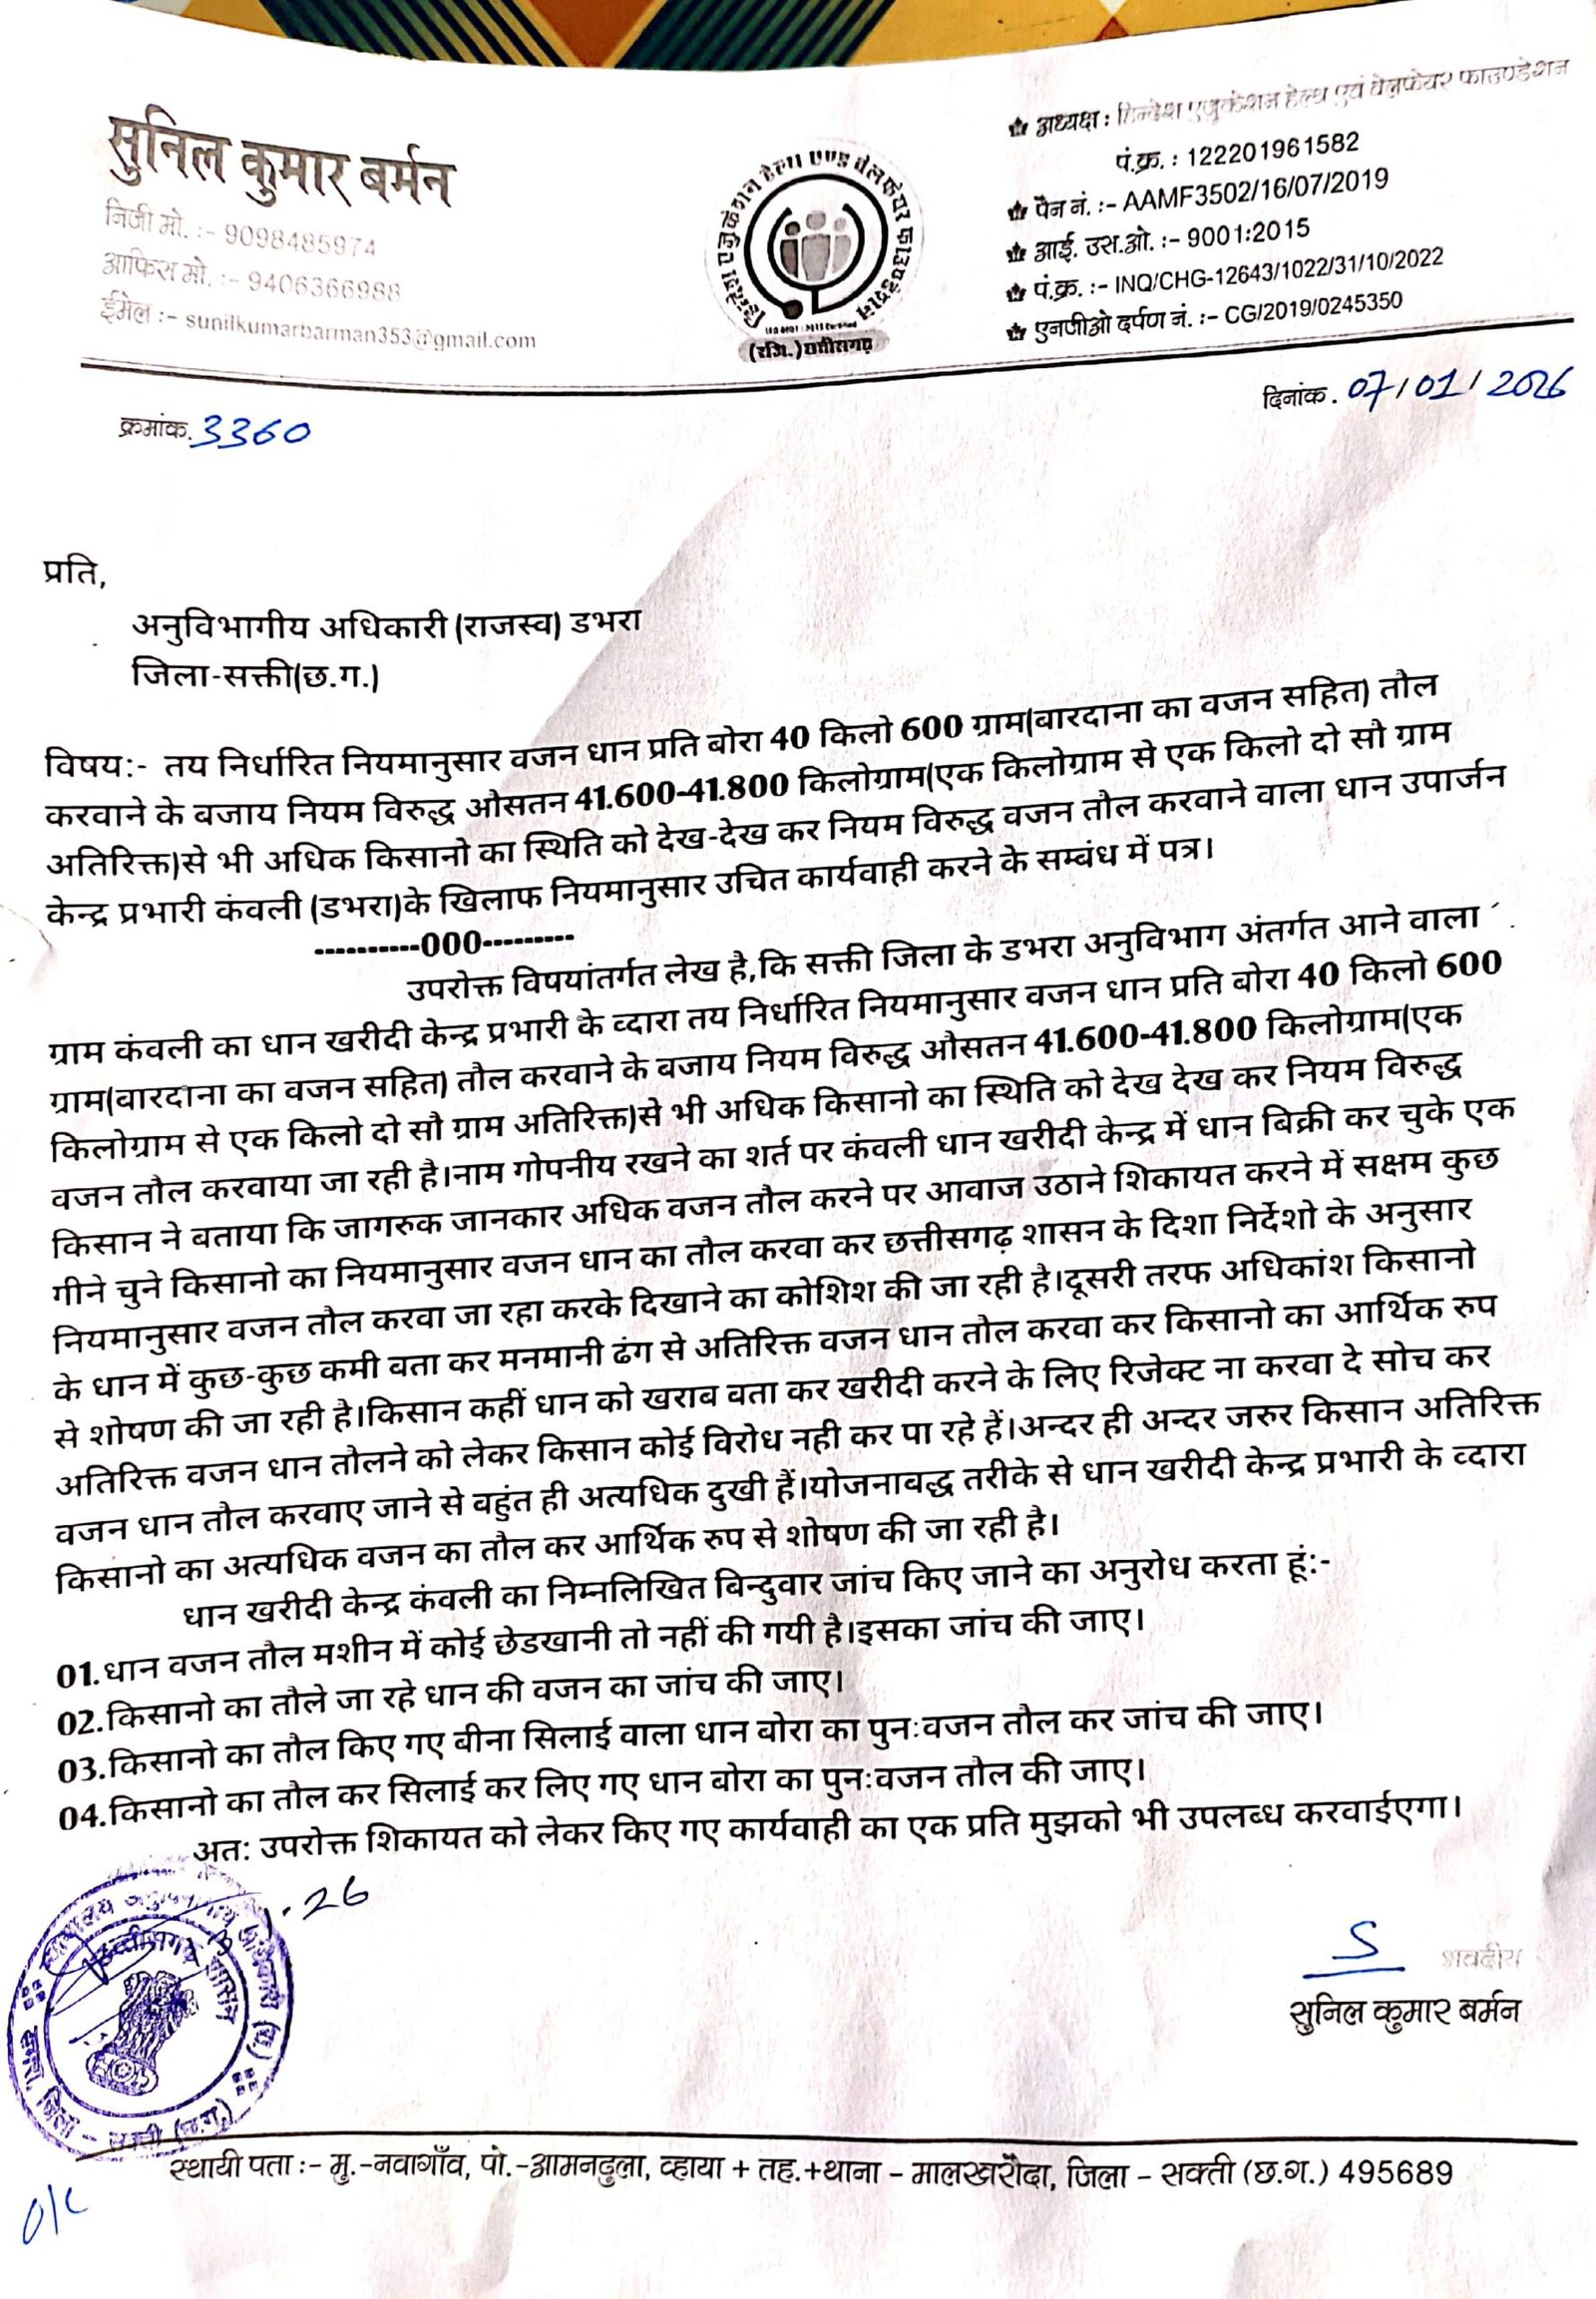 सुनिल कुमार बर्मन
निजी मो. :- 9098485974
आफिस मो. :- 9406366988
ईमेल :- sunilkumarbarman353@gmail.com
हिन्देश एजुकेशन हेल्थ एण्ड वेलफेयर फाउण्डेशन
(रजि.) छत्तीसगढ़
अध्यक्ष : हिन्देश एजुकेशन हेल्थ एवं वेलफेयर फाउण्डेशन
पं.क्र. : 122201961582
पैन नं. :- AAMF3502/16/07/2019
आई. उस.ओ. :- 9001:2015
पं.क्र. :- INQ/CHG-12643/1022/31/10/2022
एनजीओ दर्पण नं. :- CG/2019/0245350
क्रमांक. 3360
दिनांक. 07/01/2026
प्रति,
अनुविभागीय अधिकारी (राजस्व) डभरा
जिला-सक्ती(छ.ग.)
विषय:- तय निर्धारित नियमानुसार वजन धान प्रति बोरा 40 किलो 600 ग्राम(बारदाना का वजन सहित) तौल
करवाने के बजाय नियम विरुद्ध औसतन 41.600-41.800 किलोग्राम(एक किलोग्राम से एक किलो दो सौ ग्राम
अतिरिक्त)से भी अधिक किसानो का स्थिति को देख-देख कर नियम विरुद्ध वजन तौल करवाने वाला धान उपार्जन
केन्द्र प्रभारी कंवली (डभरा)के खिलाफ नियमानुसार उचित कार्यवाही करने के सम्बंध में पत्र।
----------000---------
उपरोक्त विषयांतर्गत लेख है,कि सक्ती जिला के डभरा अनुविभाग अंतर्गत आने वाला
ग्राम कंवली का धान खरीदी केन्द्र प्रभारी के व्दारा तय निर्धारित नियमानुसार वजन धान प्रति बोरा 40 किलो 600
ग्राम(बारदाना का वजन सहित) तौल करवाने के बजाय नियम विरुद्ध औसतन 41.600-41.800 किलोग्राम(एक
किलोग्राम से एक किलो दो सौ ग्राम अतिरिक्त)से भी अधिक किसानो का स्थिति को देख देख कर नियम विरुद्ध
वजन तौल करवाया जा रही है।नाम गोपनीय रखने का शर्त पर कंवली धान खरीदी केन्द्र में धान बिक्री कर चुके एक
किसान ने बताया कि जागरुक जानकार अधिक वजन तौल करने पर आवाज उठाने शिकायत करने में सक्षम कुछ
गीने चुने किसानो का नियमानुसार वजन धान का तौल करवा कर छत्तीसगढ़ शासन के दिशा निर्देशो के अनुसार
नियमानुसार वजन तौल करवा जा रहा करके दिखाने का कोशिश की जा रही है।दूसरी तरफ अधिकांश किसानो
के धान में कुछ-कुछ कमी बता कर मनमानी ढंग से अतिरिक्त वजन धान तौल करवा कर किसानो का आर्थिक रुप
से शोषण की जा रही है।किसान कहीं धान को खराब बता कर खरीदी करने के लिए रिजेक्ट ना करवा दे सोच कर
अतिरिक्त वजन धान तौलने को लेकर किसान कोई विरोध नही कर पा रहे हैं।अन्दर ही अन्दर जरुर किसान अतिरिक्त
वजन धान तौल करवाए जाने से बहुंत ही अत्यधिक दुखी हैं।योजनावद्ध तरीके से धान खरीदी केन्द्र प्रभारी के व्दारा
किसानो का अत्यधिक वजन का तौल कर आर्थिक रुप से शोषण की जा रही है।
धान खरीदी केन्द्र कंवली का निम्नलिखित बिन्दुवार जांच किए जाने का अनुरोध करता हूं:-
01.धान वजन तौल मशीन में कोई छेडखानी तो नहीं की गयी है।इसका जांच की जाए।
02.किसानो का तौले जा रहे धान की वजन का जांच की जाए।
03.किसानो का तौल किए गए बीना सिलाई वाला धान बोरा का पुनःवजन तौल कर जांच की जाए।
04.किसानो का तौल कर सिलाई कर लिए गए धान बोरा का पुनःवजन तौल की जाए।
अतः उपरोक्त शिकायत को लेकर किए गए कार्यवाही का एक प्रति मुझको भी उपलब्ध करवाईएगा।
26
छत्तीसगढ़ शासन
सक्ती (छ.ग.)
S
भवदीय
सुनिल कुमार बर्मन
स्थायी पता :- मु.-नवागाँव, पो.-आमनदुला, व्हाया + तह.+थाना - मालखरौदा, जिला - सक्ती (छ.ग.) 495689
O/C